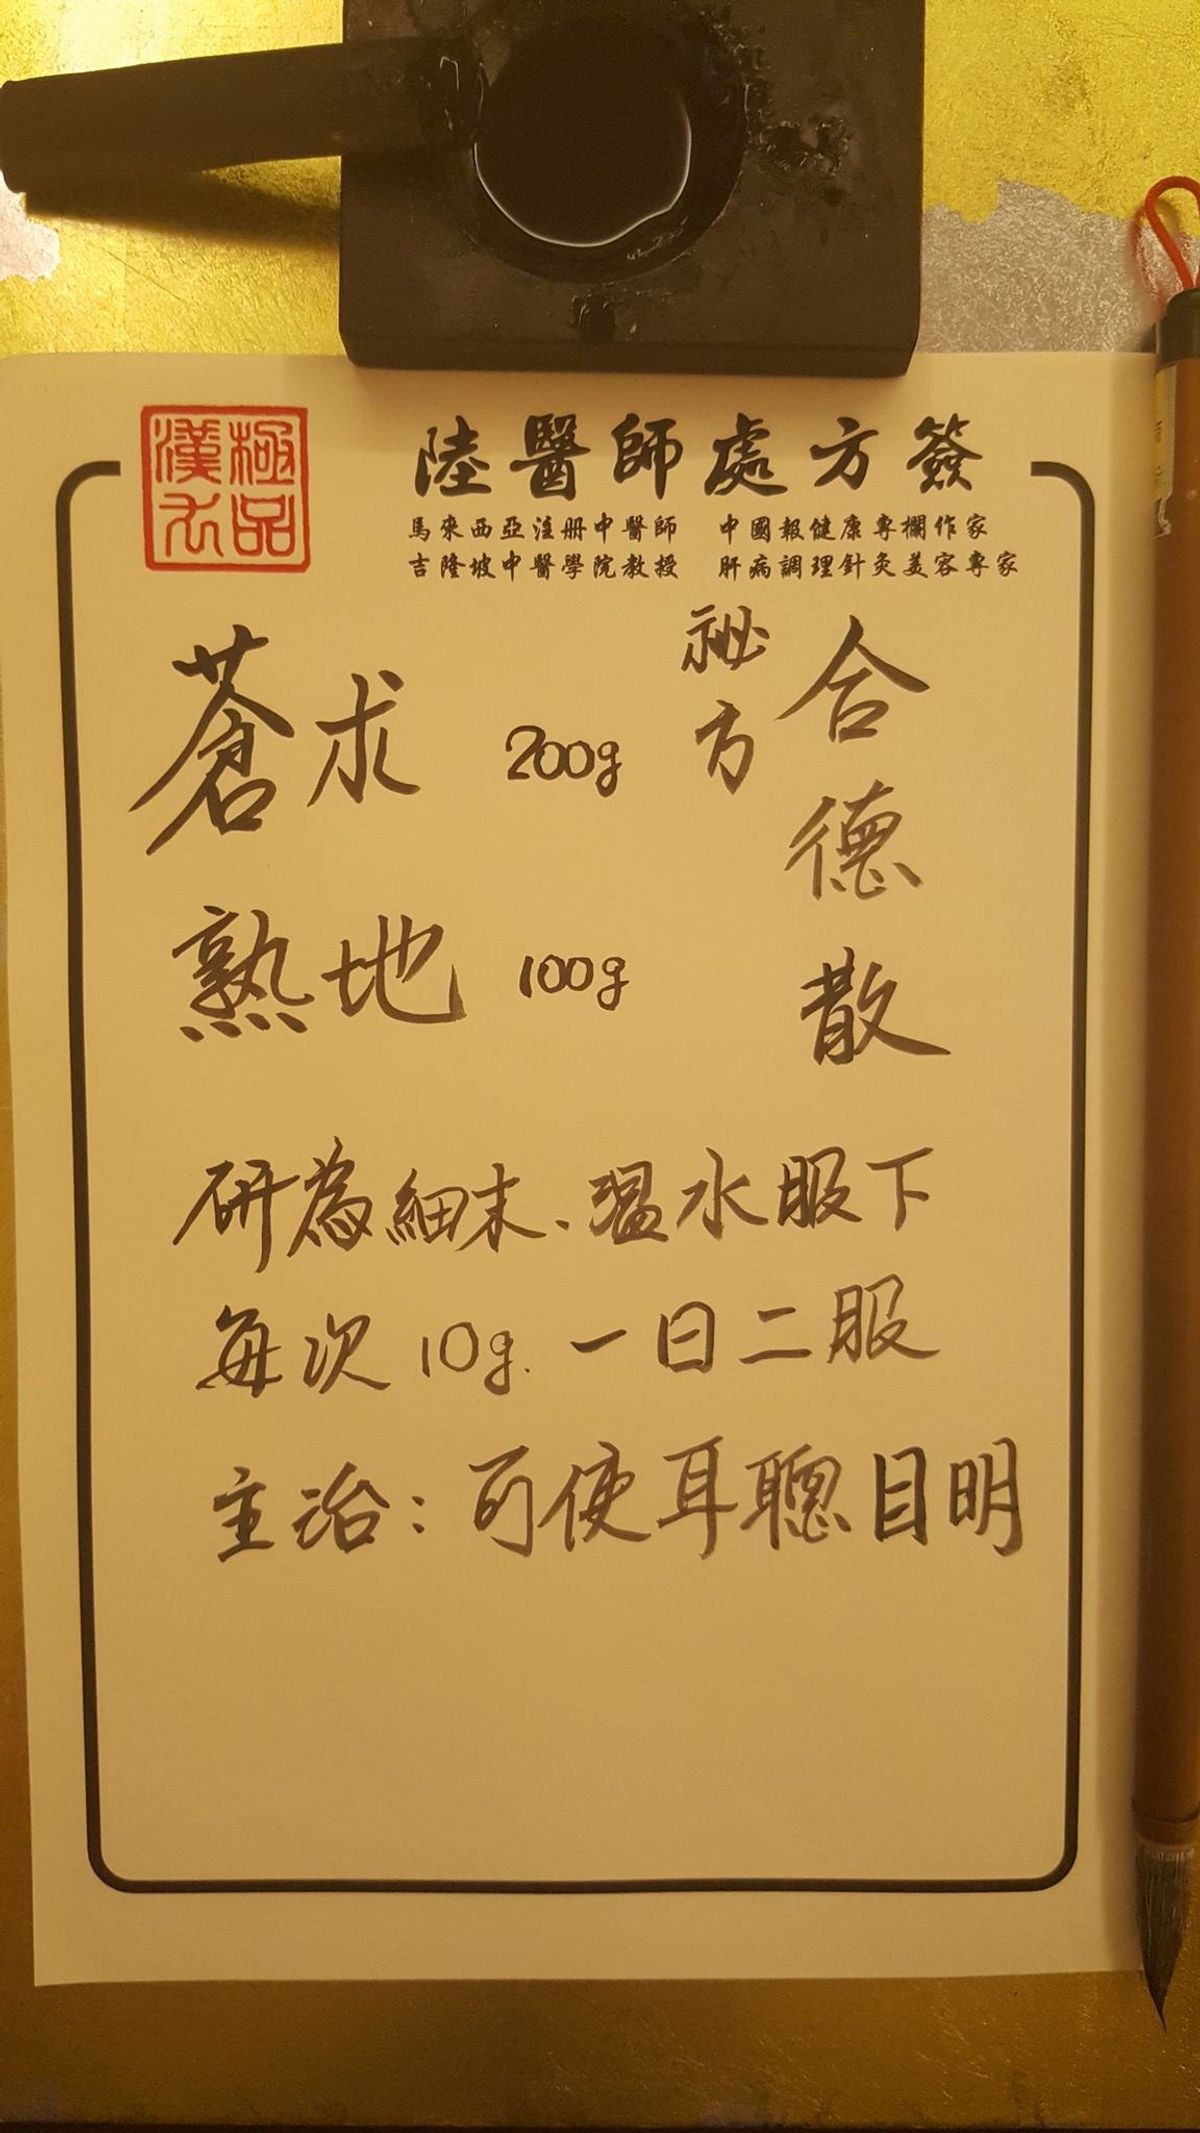 極品漢方
陸醫師處方簽
馬來西亞注册中醫師 中國報健康專欄作家
吉隆坡中醫學院教授 肝病調理針灸美容專家
秘方 合德散
蒼术 200g
熟地 100g
研為細末、溫水服下
每次 10g. 一日二服
主治：可使耳聰目明